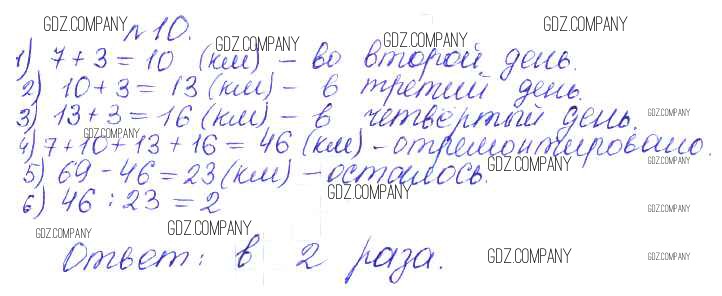 GDZ.COMPANY GDZ.COMPANY
№10. GDZ.COMPANY GDZ.COMPANY
1) 7 + 3 = 10 (км) - во второй день.
2) 10 + 3 = 13 (км) - в третий день.
3) 13 + 3 = 16 (км) - в четвёртый день.
GDZ.COMPANY GDZ.COMPANY
4) 7 + 10 + 13 + 16 = 46 (км) - отремонтировано.
GDZ.COMPANY GDZ.COMPANY
5) 69 - 46 = 23 (км) - осталось.
GDZ.COMPANY
6) 46 : 23 = 2
GDZ.COMPANY
GDZ.COMPANY GDZ.COMPANY
Ответ: в 2 раза.
GDZ.COMPANY GDZ.COMPANY